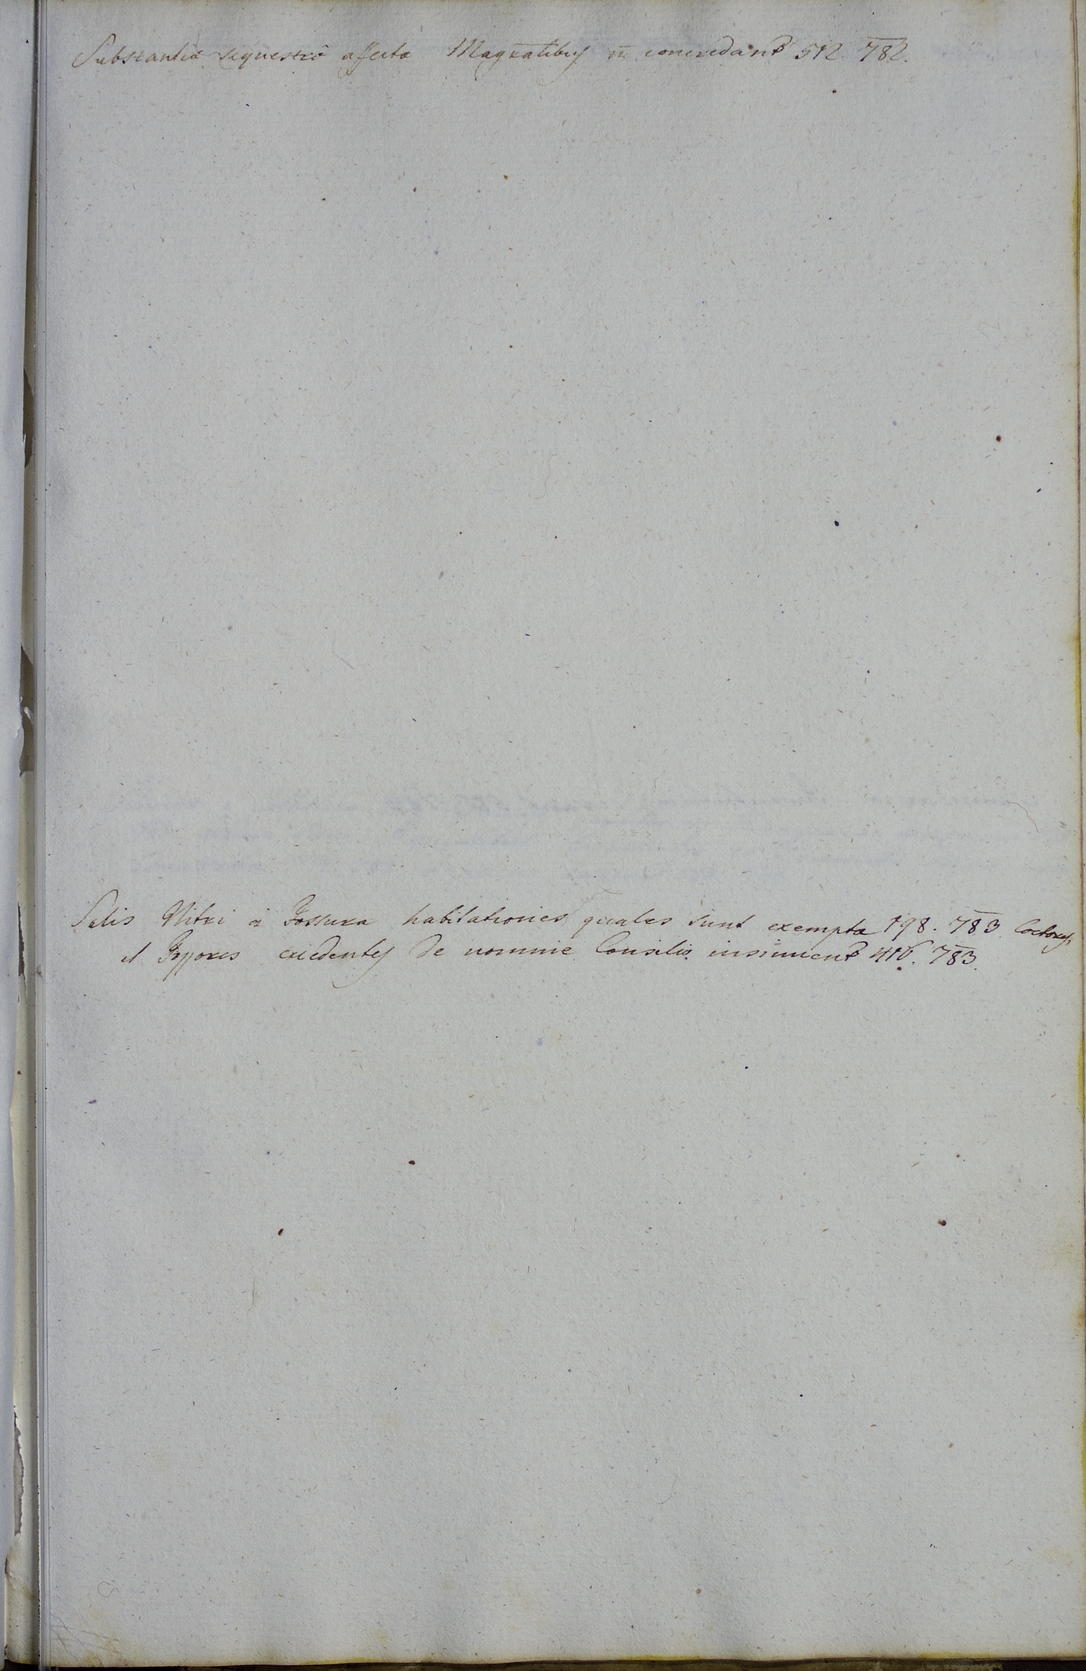 Substantiæ sequestro affectæ Magnatibus ñ concredant 512. 782.
Salis Nitri a Fossura habitationes quales sunt exemptæ 198. 783 Coctores
et Fossores excedentes de nomine Consilio insinuent 416. 783.